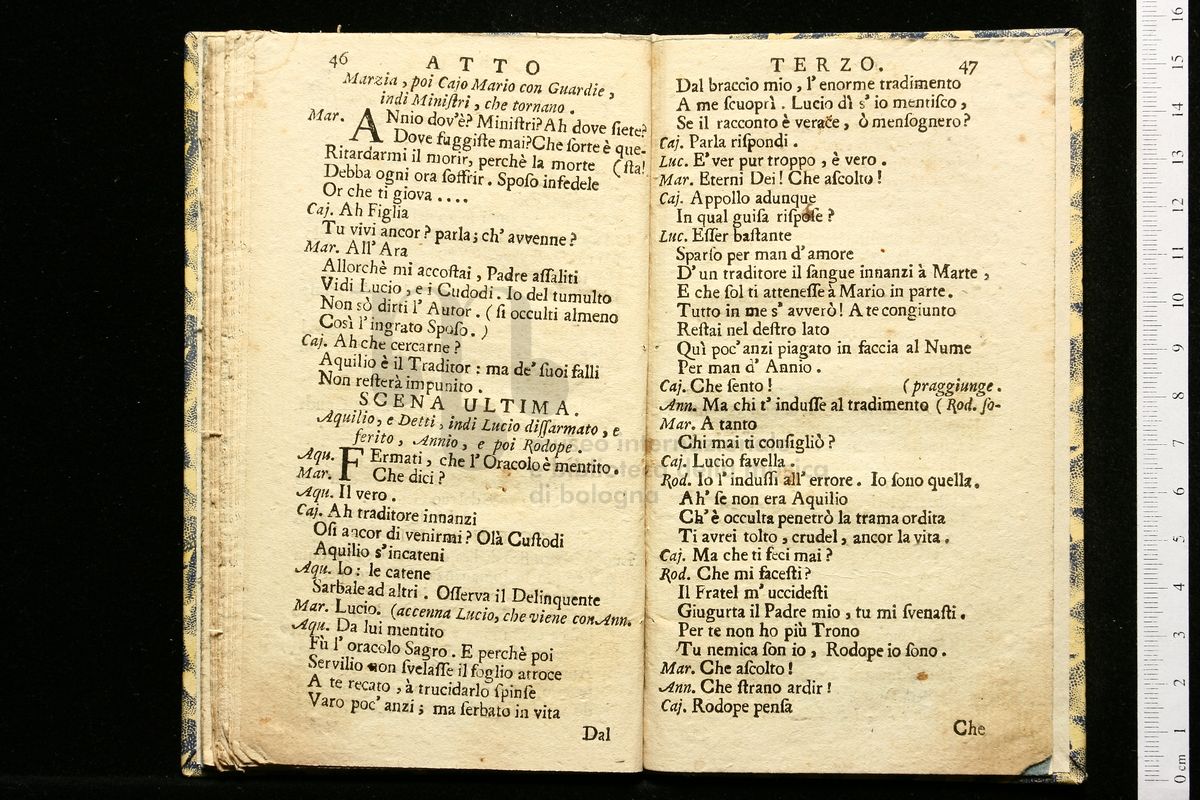 46
ATTO
Marzia, poi Cajo Mario con Guardie,
indi Miniſtri, che tornano.
Mar. ANnio dov'è? Miniſtri? Ah dove ſiete?
Dove fuggiſte mai? Che ſorte è que-
Ritardarmi il morir, perchè la morte (ſta!
Debba ogni ora ſoffrir. Spoſo infedele
Or che ti giova ....
Caj. Ah Figlia
Tu vivi ancor? parla; ch' avvenne?
Mar. All' Ara
Allorchè mi accoſtai, Padre aſſaliti
Vidi Lucio, e i Cudodi. Io del tumulto
Non sò dirti l' Autor. (ſi occulti almeno
Così l' ingrato Spoſo.)
Caj. Ah che cercarne?
Aquilio è il Traditor: ma de' ſuoi falli
Non reſterà impunito.
SCENA ULTIMA.
Aquilio, e Detti, indi Lucio diſſarmato, e
ferito, Annio, e poi Rodope.
Aqu. FErmati, che l' Oracolo è mentito.
Mar. Che dici?
Aqu. Il vero.
Caj. Ah traditore innanzi
Oſi ancor di venirmi? Olà Cuſtodi
Aquilio s' incateni
Aqu. Io: le catene
Sarbale ad altri. Oſſerva il Delinquente
Mar. Lucio. (accenna Lucio, che viene con Ann.
Aqu. Da lui mentito
Fù l' oracolo Sagro. E perchè poi
Servilio non ſvelaſſe il foglio atroce
A te recato, à trucidarlo ſpinſe
Varo poc' anzi; ma ſerbato in vita
Dal
TERZO.
47
Dal braccio mio, l' enorme tradimento
A me ſcuoprì. Lucio dì s' io mentiſco,
Se il racconto è verace, ò menſognero?
Caj. Parla riſpondi.
Luc. E' ver pur troppo, è vero.
Mar. Eterni Dei! Che aſcolto!
Caj. Appollo adunque
In qual guiſa riſpoſe?
Luc. Eſſer baſtante
Sparſo per man d' amore
D' un traditore il ſangue innanzi à Marte,
E che ſol ti atteneſſe à Mario in parte.
Tutto in me s' avverò! A te congiunto
Reſtai nel deſtro lato
Quì poc' anzi piagato in faccia al Nume
Per man d' Annio.
Caj. Che ſento! (praggiunge.
Ann. Ma chi t' induſſe al tradimento (Rod. ſo-
Mar. A tanto
Chi mai ti conſigliò?
Caj. Lucio favella.
Rod. Io l' induſſi all' errore. Io ſono quella.
Ah' ſe non era Aquilio
Ch' è occulta penetrò la trama ordita
Ti avrei tolto, crudel, ancor la vita.
Caj. Ma che ti feci mai?
Rod. Che mi faceſti?
Il Fratel m' uccideſti
Giugurta il Padre mio, tu mi ſvenaſti.
Per te non ho più Trono
Tu nemica ſon io, Rodope io ſono.
Mar. Che aſcolto!
Ann. Che ſtrano ardir!
Caj. Rodope penſa
Che